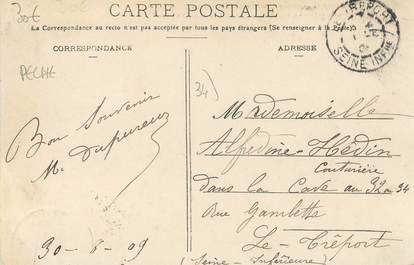 30€
CARTE POSTALE
La Correspondance au recto n'est pas acceptée par tous les pays étrangers (Se renseigner à la Poste)
LE TREPORT
SEINE INFRE
CORRESPONDANCE
ADRESSE
PECHE
34)
Bon Souvenir
M. Dupureur
30-8-09
Mademoiselle
Alfredine Hédin
Couturière
dans la Cave au 32 a 34
Rue Gambetta
Le Tréport
(Seine-Inférieure)